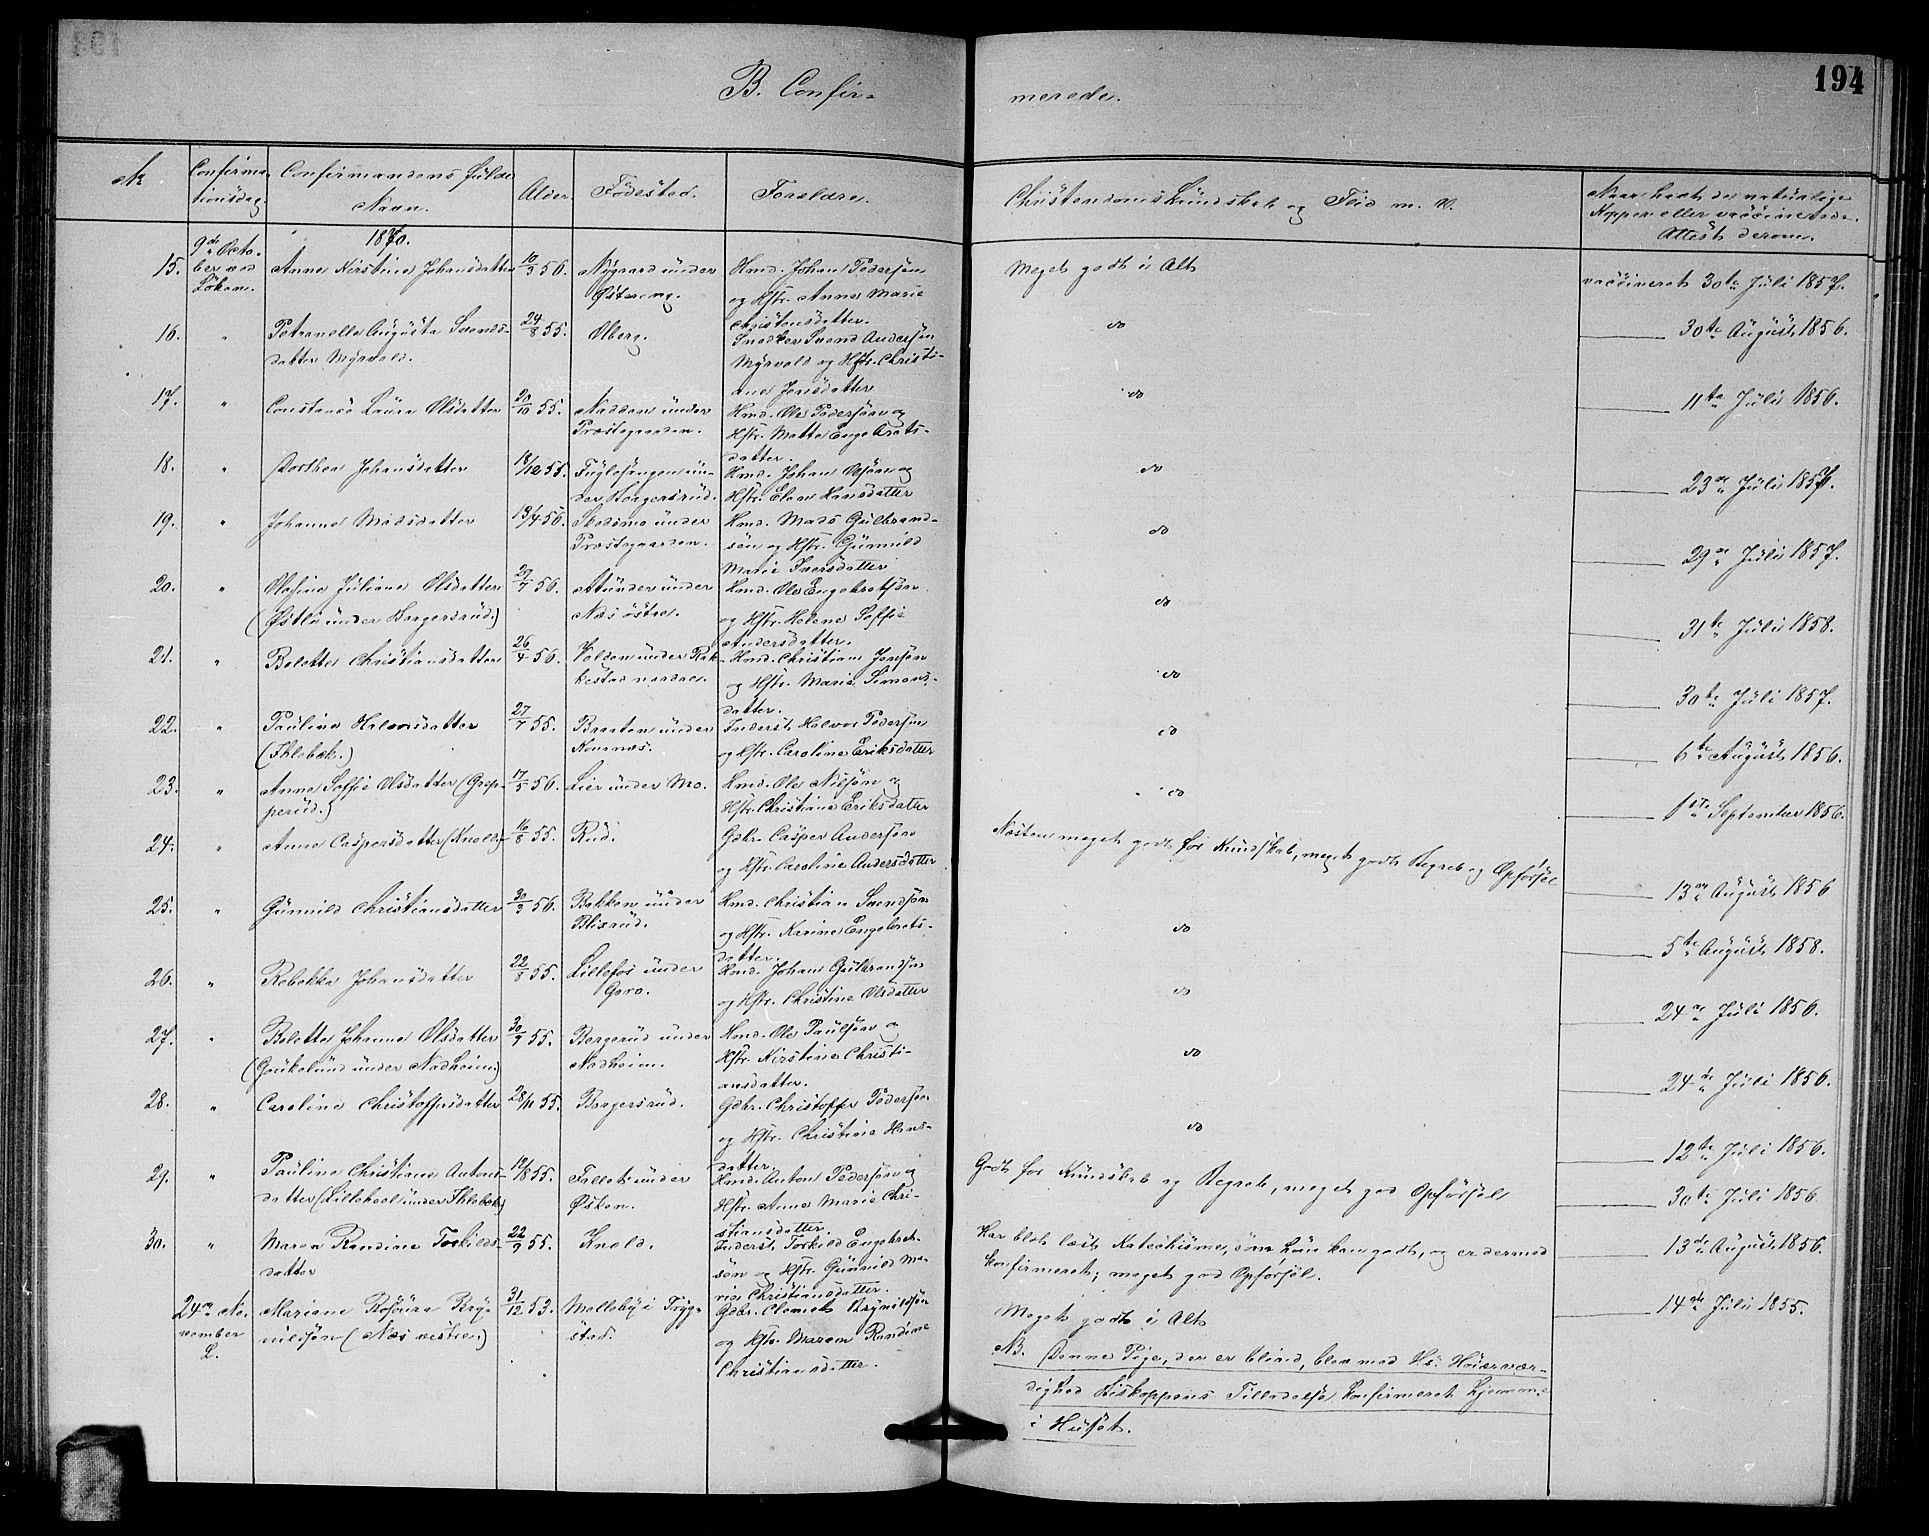 194
B. Confir-
merede.
No
Confirma-
tionsdag.
Confirmandens fulde
Navn.
Alder.
Fødested.
Forældre.
Christendomskundskab og Flid m. v.
Naar havt de naturlige
Kopper eller vaccinerede.
Attest derom.
1870.
15.
9de Octo-
ber ved
Løken.
Anne Kirstine Johansdatter
10/3 56.
Nygaard under
Østereng.
Hmd. Johan Pedersøn
og Hstr. Anne Marie
Christensdatter.
Meget godt i Alt
vaccineret 30te Juli 1857.
16.
"
Petranelle Augusta Svends-
datter Myrvold.
24/8 55.
Olberg.
Snedker Svend Andersøn
Myrvold og Hstr. Christi-
ane Jensdatter
do
30te August 1856.
17.
"
Constance Laura Olsdatter
20/10 55.
Nadden under
Præstegaarden.
Hmd. Ole Pedersøn og
Hstr. Mathe Engebrets-
datter.
do
11te Juli 1856.
18.
"
Dorthea Johansdatter
18/12 55.
Fuglesangen un-
der Haagersrud.
Hmd. Johan Olsøn og
Hstr. Elen Hansdatter
do
23de Juli 1857.
19.
"
Johanne Madsdatter
13/4 56.
under
Præstegaarden.
Hmd. Mads Gulbrand-
søn og Hstr. Gunnild
Marie Iversdatter
do
29de Juli 1857.
20.
"
Olafine Juliane Olsdatter
(Østli under Haagersrud.)
29/7 56.
under
Næs østre.
Hmd. Ole Engebretsøn
og Hstr. Helene Soffie
Andersdatter.
do
31te Juli 1858.
21.
"
Bolette Christiansdatter
26/4 56.
Volden under Rak-
kestad nordre.
Hmd. Christian Jensøn
og Hstr. Marie Simens-
datter.
do
30te Juli 1857.
22.
"
Pauline Halvorsdatter
(Ihlebæk.)
27/7 55.
Braaten under
Kornnæs.
Inderst Halvor Pedersøn
og Hstr. Caroline Eriksdatter
do
6te August 1856.
23.
"
Anne Soffie Olsdatter (Grep-
perud.)
17/5 56.
Lier under Mo.
Hmd. Ole Nilsøn og
Hstr. Christiane Eriksdatter
do
1ste September 1856.
24.
"
Anne Caspersdatter (Knold)
16/8 55.
Rud.
Gdbr. Casper Andersøn
og Hstr. Caroline Andersdatter
Næsten meget godt for Kundskab, meget godt Begreb og Opførsel
13de August 1856
25.
"
Gunnild Christiansdatter
30/3 56.
Bakken under
Blixrud.
Hmd. Christian Svendsøn
og Hstr. Karine Engebrets-
datter.
do
5te August 1858.
26.
"
Rebekka Johansdatter
22/8 55.
Lillefos under
Hmd. Johan Gulbrandsøn
og Hstr. Christine Olsdatter
do
24de Juli 1856.
27.
"
Bolette Johanne Olsdatter
(Goukelund under Nadheim)
30/9 55.
Borgerud under
Nadheim.
Hmd. Ole Paulsøn og
Hstr. Kirstine Christi-
ansdatter.
do
24de Juli 1856.
28.
"
Caroline Christoffersdatter
28/11 55.
Haagersrud.
Gdbr. Christoffer Pedersøn
og Hstr. Christine Hans-
datter.
do
12te Juli 1856.
29.
"
Pauline Christiane Antons-
datter (Lillehol under Ihlebæk)
12/8 55.
Fallet under
Østen.
Hmd. Anton Pedersøn og
Hstr. Anne Marie Chri-
stiansdatter.
Godt for Kundskab og Begreb, meget god Opførsel
30te Juli 1856.
30.
"
Maren Randine Torkilds-
datter
22/9 55.
Knold.
Inderst Torkild Engebret-
søn og Hstr. Gunnild Ma-
rie Christiansdatter.
Har blot læst Katechisme, som hun kan godt, og er dermed
konfirmeret; meget god Opførsel.
13de August 1856.
24de No-
vember
L.
Mariane Rosoura Bry-
nildsøn (Næs vestre.)
31/12 53.
Molleby i Tryg-
stad.
Gdbr. Clemet Brynildsøn
og Hstr. Maren Randine
Christiansdatter.
Meget godt i Alt
NB. Denne Pige, der er blind, blev med Hs. Høiærvær-
dighed Biskoppens Tilladelse konfirmeret hjemme
i Huset.
14de Juli 1855.